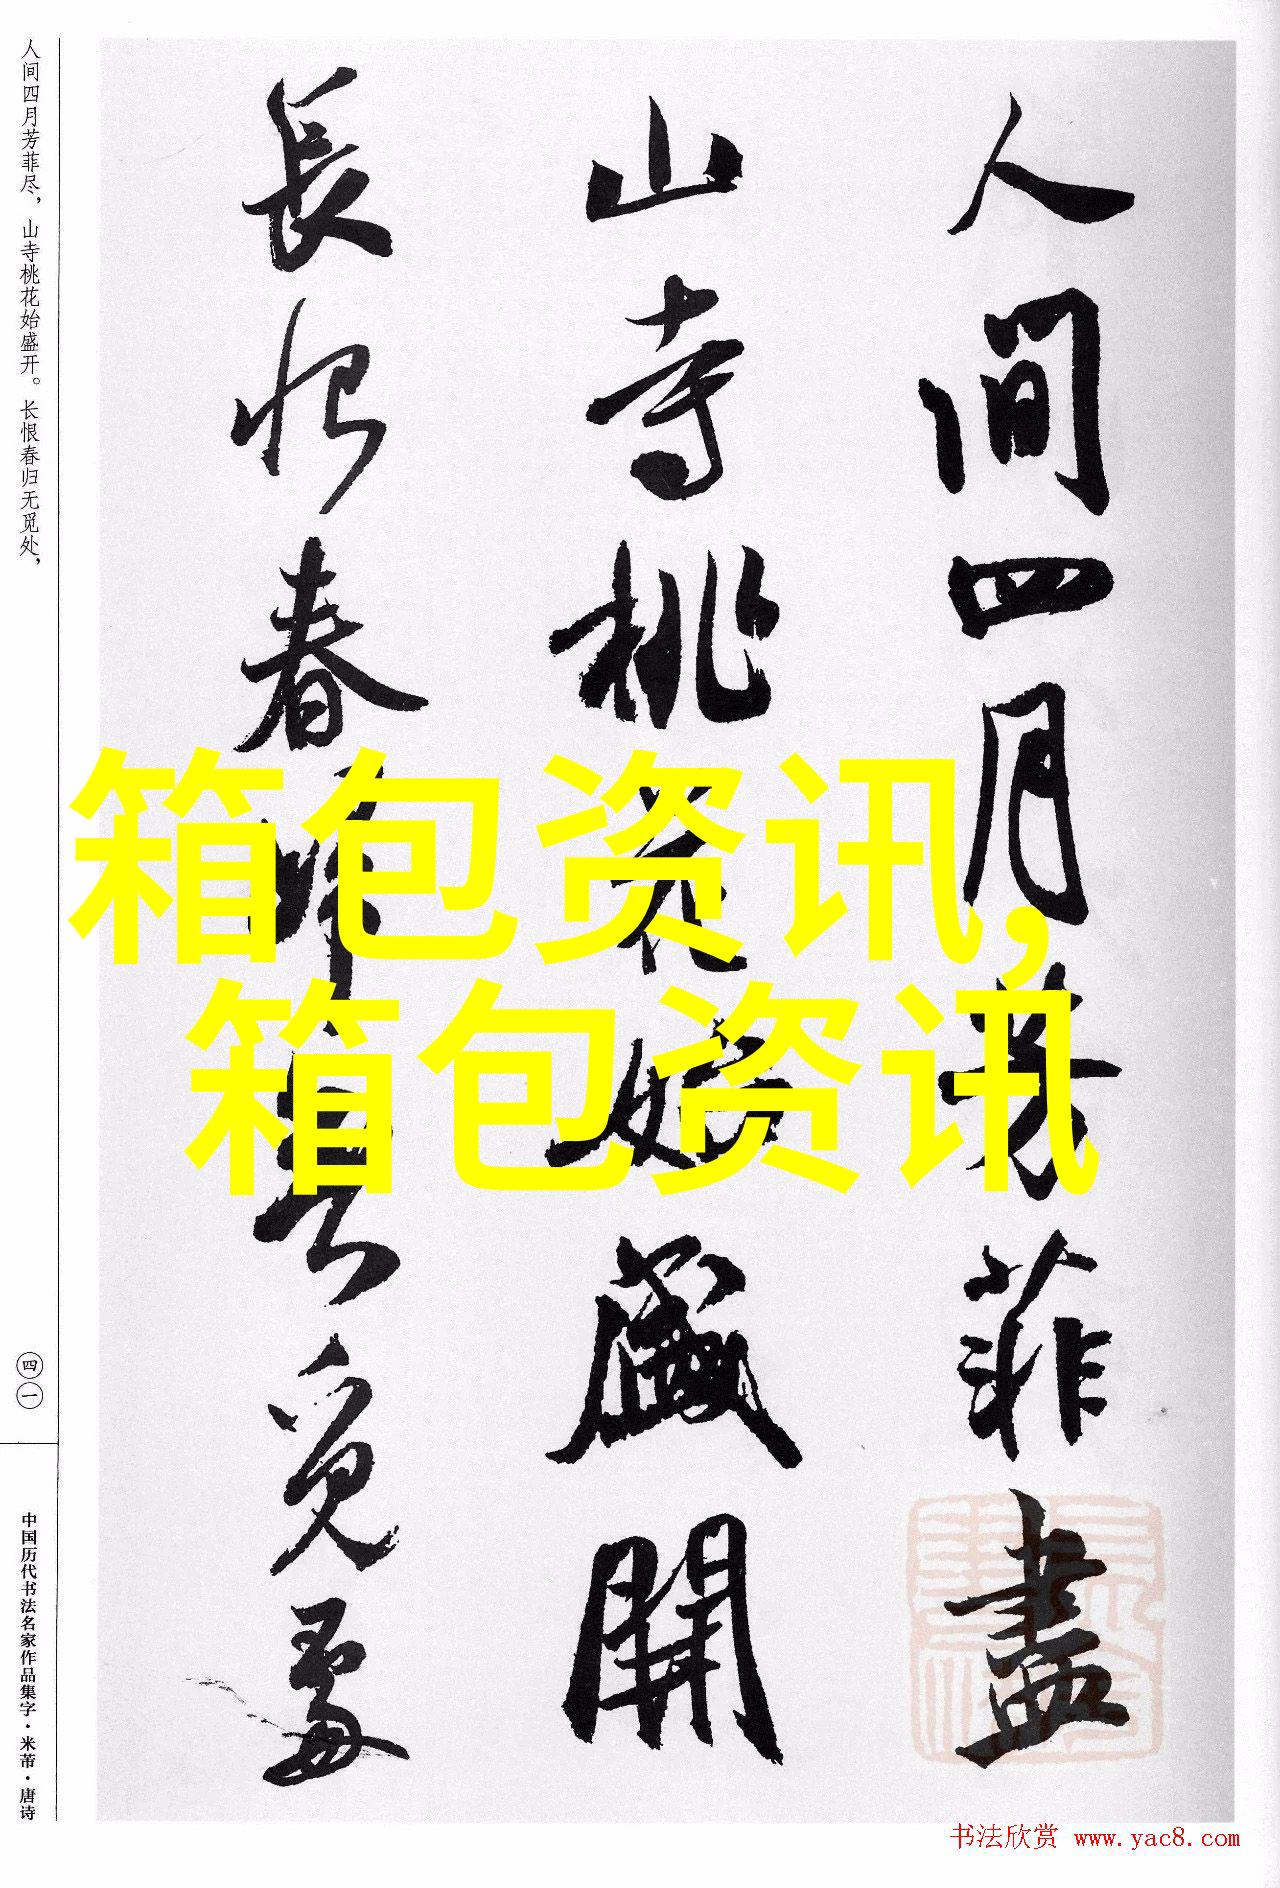 人間四月芳菲盡
山寺桃花始盛開
長恨春歸無覓處
箱包资讯,
箱包资讯
人间四月芳菲尽，山寺桃花始盛开。长恨春归无觅处，
四一
中国历代书法名家作品集字·米芾·唐诗
书法欣赏 www.yac8.com